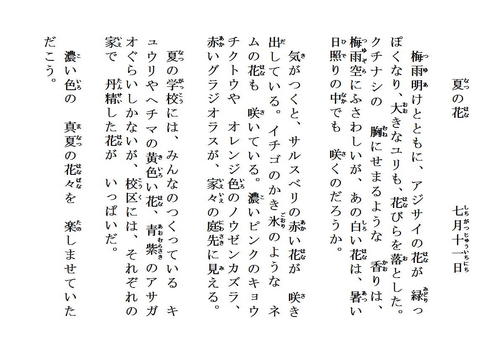 夏の花　　七月十一日
梅雨明けとともに、アジサイの花が　緑っ
ぽくなり、大きなユリも、花びらを落とした。
クチナシの　胸にせまるような　香りは、
梅雨空にふさわしいが、あの白い花は、暑い
日照りの中でも　咲くのだろうか。
気がつくと、サルスベリの赤い花が　咲き
出している。イチゴのかき氷のような　ネ
ムの花も　咲いている。濃いピンクのキョウ
チクトウや　オレンジ色のノウゼンカズラ、
赤いグラジオラスが、家々の庭先に見える。
夏の学校には、みんなのつくっている　キ
ュウリやヘチマの黄色い花、青紫のアサガ
オぐらいしかないが、校区には、それぞれの
家で　丹精した花が　いっぱいだ。
濃い色の　真夏の花々を　楽しませていた
だこう。